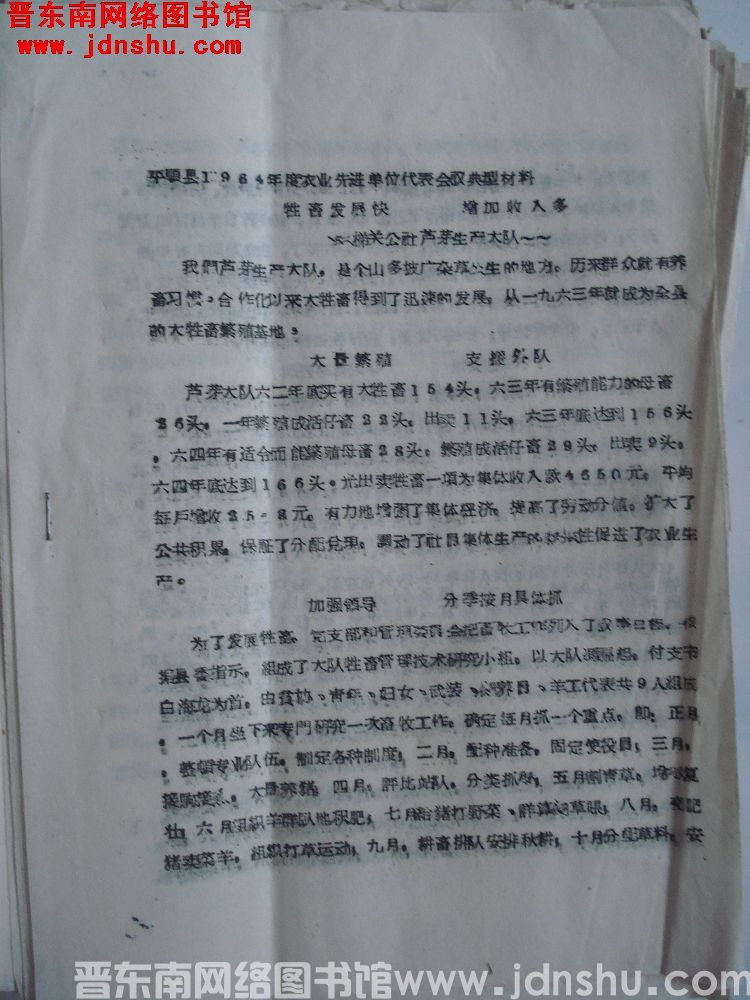 晋东南网络图书馆
www.jdnshu.com
平顺县1964年度农业先进单位代表会议典型材料
牲畜发展快 增加收入多
关公社芦芽生产大队~~
我們芦芽生产大队,是个山多坡广杂草丛生的地方。历来群众就有养
畜习惯。合作化以来大牲畜得到了迅速的发展,从一九六三年就成为全县
的大牲畜繁殖基地。
大量繁殖 支援外队
芦芽大队六二年底实有大牲畜154头,六三年有繁殖能力的母畜
26头,一年繁殖成活仔畜22头,出卖11头,六三年底达到156头
。六四年有适合而能繁殖母畜28头,繁殖成活仔畜29头,出卖9头,
六四年底达到166头。光出卖牲畜一項为集体收入款4650元,平均
每戶增收25.8元,有力地增强了集体经济,提高了劳动分值。扩大了
公共积累,保証了分配兑現,調动了社員集体生产的积极性促进了农业生
产。
加强领导 分季按月具体抓
为了发展牲畜,党支部和管理委員会把畜牧工作列入了議事日程,根
据县委指示,組成了大队牲畜管理技术研究小組,以大队付支书
白海龙为首,由貧协、青年、妇女、武装、飼养員、羊工代表共9人組成
,一个月坐下来专門研究一次畜牧工作,确定每月抓一个重点,即:正月
,整頓专业队伍,制定各种制度;二月,配种准备,固定使役員;三月,
大量养猪,四月,評比站队,分类抓,五月割青草,增复
壮,六月組織羊群队地积肥,七月給猪打野菜、群草,八月,
猪卖菜羊,組織打草运动,九月,耕畜排队安排秋耕,十月分配草料,安
晋东南网络图书馆www.jdnshu.com